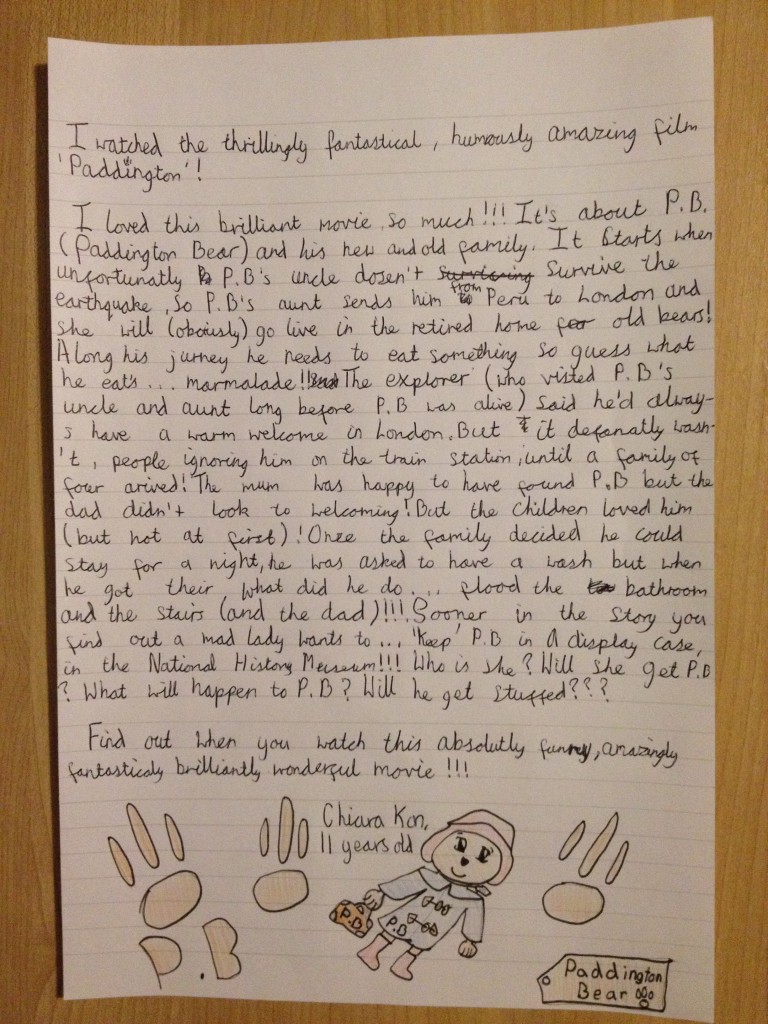 I watched the thrillingly fantastical, humously amazing film
'Paddington'!
I loved this brilliant movie so much!!! It's about P.B.
(Paddington Bear) and his new and old family. It starts when
unfortunatly P.B's uncle dosen't survive the
earthquake, so P.B's aunt sends him from Peru to London and
she will (obviously) go live in the retired home for old bears!
Along his jurney he needs to eat something so guess what
he eat's... marmalade!! The explorer (who visted P.B's
uncle and aunt long before P.B was alive) said he'd alway-
s have a warm welcome in London. But it defanatly wasn-
't, people ignoring him on the train station, until a family of
four arived! The mum was happy to have found P.B but the
dad didn't look to welcoming! But the children loved him
(but not at first)! Once the family decided he could
stay for a night, he was asked to have a wash but when
he got their, what did he do... flood the bathroom
and the stairs (and the dad)!!! Sooner in the story you
find out a mad lady wants to... 'keep' P.B in a display case,
in the National History Meuseum!!! Who is she? Will she get P.B
? What will happen to P.B? Will he get stuffed???
Find out when you watch this absolutly funny, amazingly
fantasticaly brilliantly wonderful movie!!!
Chiara Kon,
11 years old
P.B
P.B
P.B
Paddington
Bear